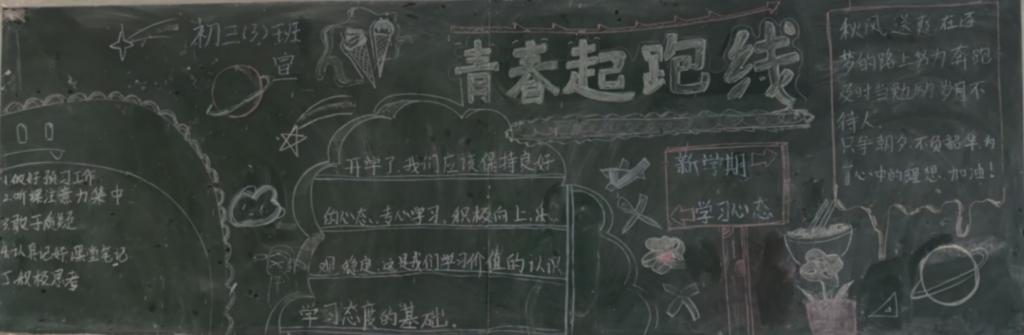 初三(3)班
宣
青春起跑线
1.做好预习工作
2.听课注意力集中
3.敢于质疑
4.认真记好课堂笔记
5.积极思考
开学了,我们应该保持良好
的心态、专心学习,积极向上,乐
观、稳定,这是我们学习价值的认识
学习态度的基础。
新学期
学习心态
秋风送爽在逐
梦的路上努力奔跑
及时当勉励岁月不
待人
只争朝夕,不负韶华为
了心中的理想,加油!